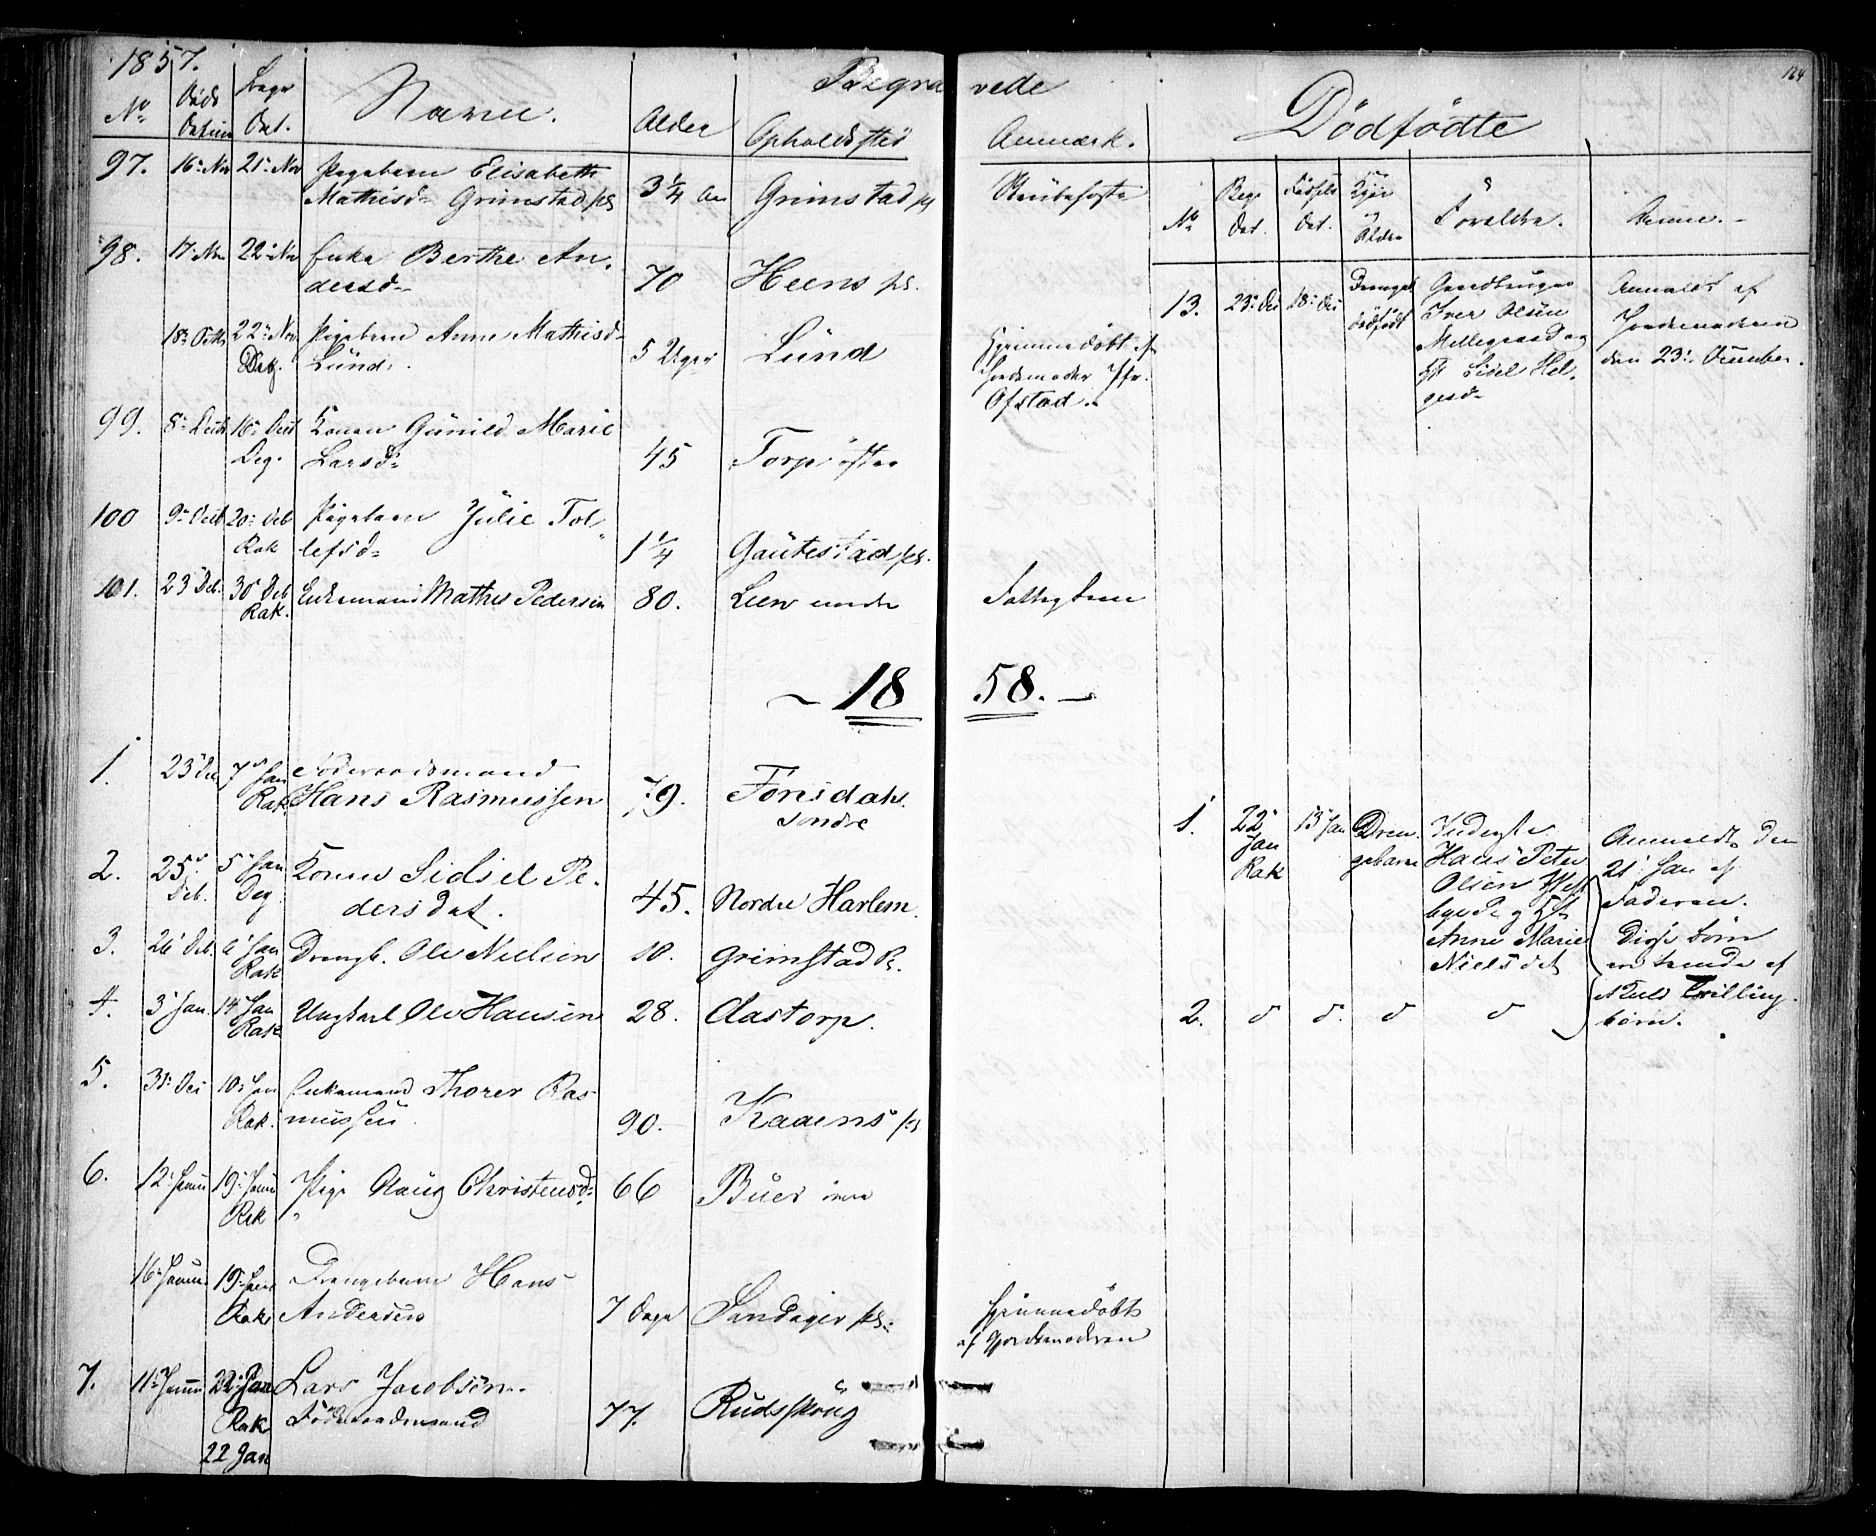 1857.
Begravede
124
No
Døds Datum
Begr Dat.
Navn.
Alder
Opholdssted
Anmærk.
97.
16 Nov
21 Nov
Pigebarn Elisabeth
Mathisd Grimstad
3 1/4 Aar
Grimstad
98.
17 Nov
22 Nov
Enke Berthe An
dersd
70
Heens
22 Nov
Deg.
Pigebarn Anne Mathisd
Lund.
5 Uger
Lund
Hjemmedøbt af
Jordemoder
Ofstad.
99.
16 Decb
Deg.
Konen Gunild Marie
Larsd
45
Torp østre
100
20 Deb
Rak
Pigebarn Julie Tol
lefsd
1 1/4
Gautestad
101.
23 Deb.
30 Deb
Rak.
Enkemand Mathis Pedersen
80.
Leen under
1858.
1.
23 Dec
7 Jan
Rak
Føderaadsmand
Hans Rasmussen
79.
søndre
2.
25
Deb.
5 Jan
Deg
Konen Sidsel Pe
dersdat.
45.
Nordre Harlem.
3.
26 Deb.
6 Jan
Rak
Drengb. Ole Nielsen
10.
Grimstad
4.
3 Jan.
14 Jan
Rak
Ungkarl Ole Hansen
28.
Aastorp.
5.
31 Dec
10 Jan
Rak.
Enkemand Thorer Ras
mussen
90.
Kaaens
6.
12 Janu
19 Janu
Rak
Pige Aaug Christensd
66
Buer
16 Janu.
19 Jan
Rak
Drengebarn Hans
Andersen
7 Dage
Sandager
Hjemmedøbt
af Gjordemoderen
7.
11 Janu
22 Jan
Rak
22 Jan
Lars Jacobsen
Føderaadsmand
77.
Rudsskoug
Dødfødte
No
Begr Dat.
Fødsels Dat.
Kjøn & Alder
Forældre.
Anm.
13.
23 Dec
18 Dec
Drengeb
dødfødt
Gaardbruger
Iver Olsen
Mellegaard og
H Sidel Hel
gesd
Anmeldt af
Jordemoderen
den 23 December.
1.
22
Jan
Rak
13 Jan
Dren
gebarn
Inderste
Hans Peter
Olsen West
bye P og H
Anne Marie
Nielsdat
Anmeldt den
21 Jan af
Faderen.
Disse Børn
ere begge af
Kuld Tvilling
børn.
2.